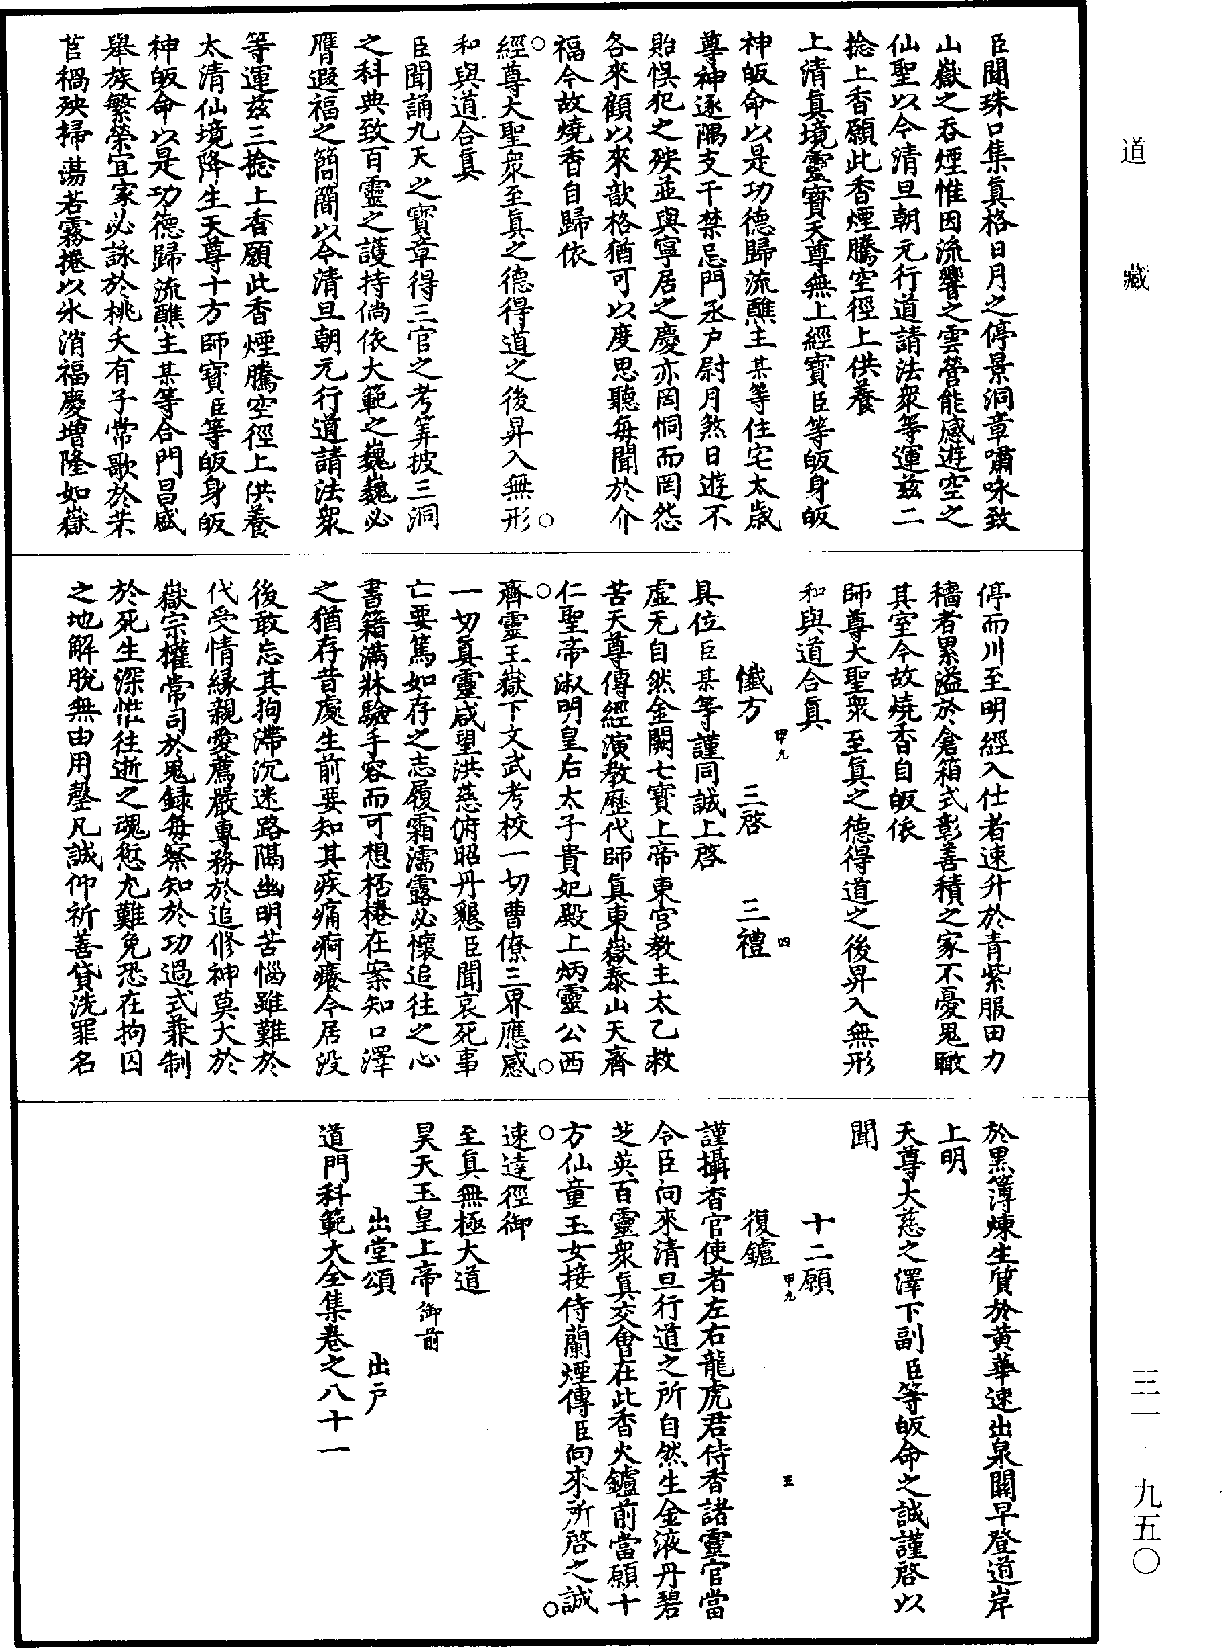 道藏
三一 九五〇
臣聞珠口集真格日月之停景洞章嘯咏致
山嶽之吞煙惟因流響之雲營能感遊空之
仙聖以今清旦朝元行道請法衆等運茲二
捻上香願此香煙騰空徑上供養
上清真境靈寶天尊無上經寶臣等皈身皈
神皈命以是功德歸流醮主某等住宅太歲
尊神逐隅支干禁忌門丞户尉月煞日遊不
貽惧犯之殃並與寧居之慶亦罔恫而罔怨
各來顧以來歆格猶可以度思聽每聞於介
福今故燒香自歸依
經尊大聖衆至真之德得道之後昇入無形
和與道合真
臣聞誦九天之寶章得三官之考筭披三洞
之科典致百靈之護持倘依大範之巍巍必
膺遐福之簡簡以今清旦朝元行道請法衆
等運茲三捻上香願此香煙騰空徑上供養
太清仙境降生天尊十方師寶臣等皈身皈
神皈命以是功德歸流醮主某等合門昌盛
舉族繁榮宜家必詠於桃夭有子常歌於芣
苢禍殃掃蕩若霧捲以氷消福慶增隆如嶽
停而川至明經入仕者速升於青紫服田力
穡者累溢於倉箱式彰善積之家不憂鬼瞰
其室今故燒香自皈依
師尊大聖衆至真之德得道之後昇入無形
和與道合真
懺方 三啓 三禮
甲九 四
具位臣某等謹同誠上啓
虛无自然金闕七寶上帝東宮教主太乙救
苦天尊傳經演教歷代師真東嶽泰山天齊
仁聖帝淑明皇后太子貴妃殿上炳靈公西
齊靈王嶽下文武考校一切曹僚三界應感
一切真靈咸望洪慈俯昭丹懇臣聞哀死事
亡要篤如存之志履霜濡露必懷追往之心
書籍滿牀驗手容而可想栝棬在案知口澤
之猶存昔處生前要知其疾痛痾癢今居没
後敢忘其拘滯沉迷路隔幽明苦惱雖難於
代受情緣親愛薦嚴專務於追修神莫大於
嶽宗權常司於鬼録每察知於功過式兼制
於死生深惟往逝之魂愆尤難免恐在拘囚
之地解脫無由用罄凡誠仰祈善貸洗罪名
於黑簿煉生質於黄華速出泉關早登道岸
上明
天尊大慈之澤下副臣等皈命之誠謹啓以
聞
十二願
復鑪
甲九 五
謹攝香官使者左右龍虎君侍香諸靈官當
令臣向來清旦行道之所自然生金液丹碧
芝英百靈衆真交會在此香火鑪前當願十
方仙童玉女接侍蘭煙傳臣向來所啓之誠
速達徑御
至真無極大道
昊天玉皇上帝御前
出堂頌 出戸
道門科範大全集卷之八十一